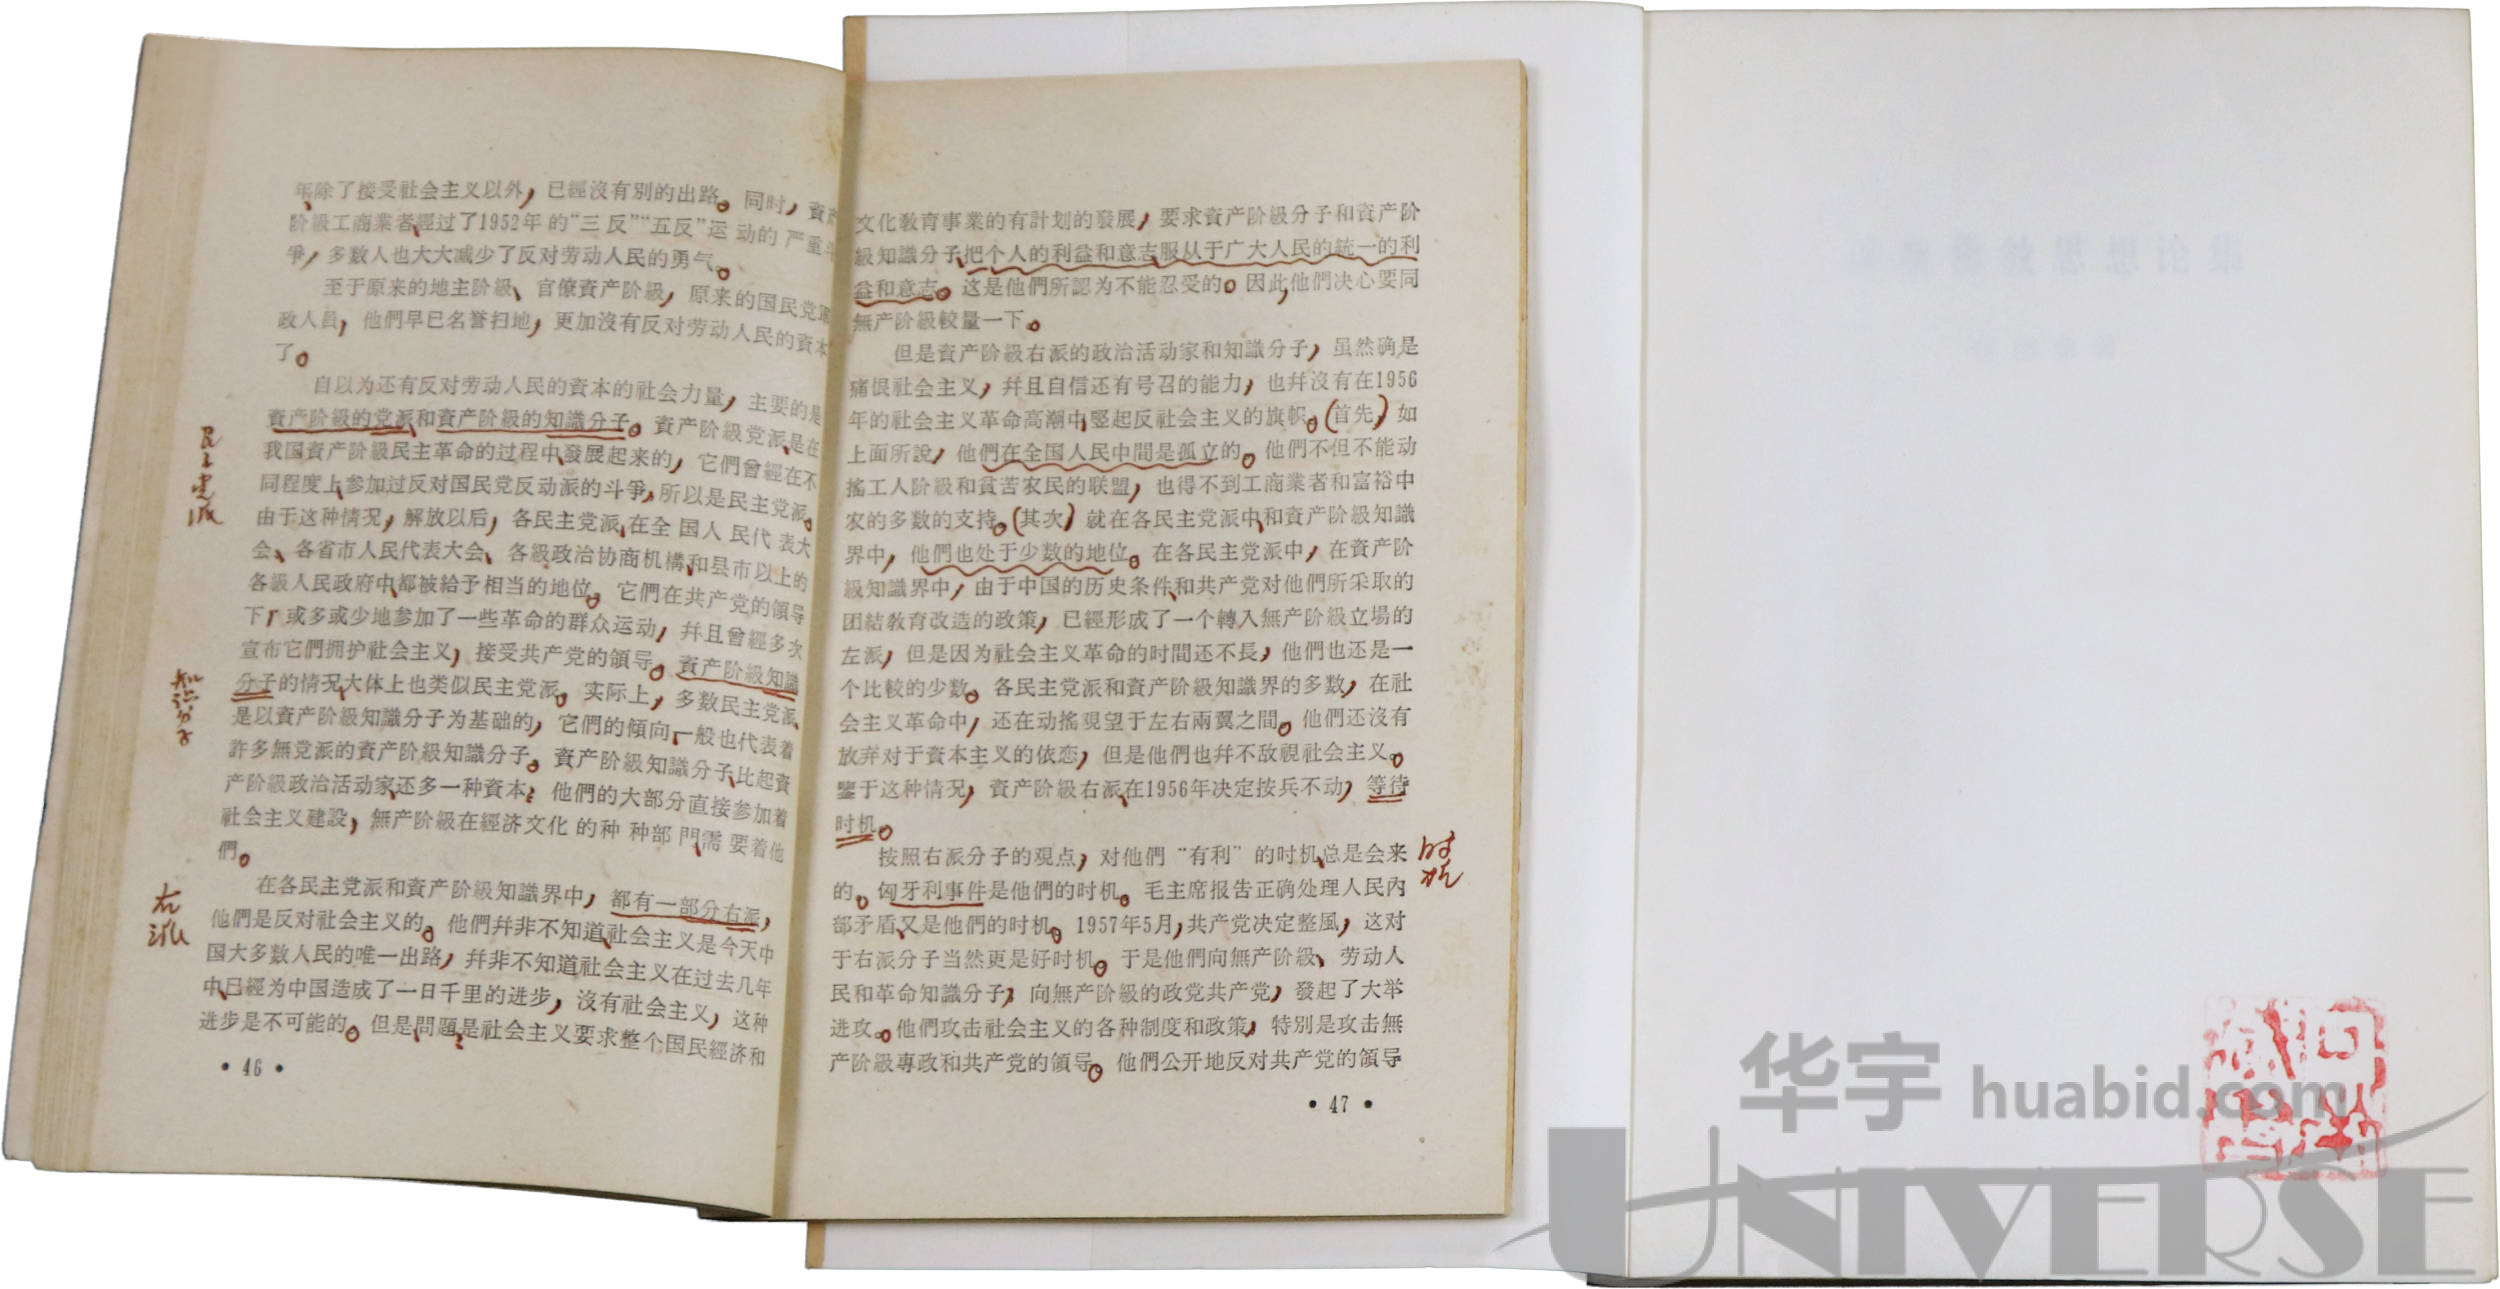 年除了接受社会主义以外，已經沒有別的出路。同时，資产
阶級工商業者、經过了1952年的“三反”“五反”运动的严重斗
爭，多数人也大大减少了反对劳动人民的勇气。
至于原来的地主阶級、官僚資产阶級，原来的国民党軍
政人員，他們早已名誉扫地，更加沒有反对劳动人民的資本
了。
自以为还有反对劳动人民的資本的社会力量，主要的是
資产阶級的党派和資产阶級的知識分子。資产阶級党派、是在
我国資产阶級民主革命的过程中、發展起来的，它們曾經在不
同程度上、参加过反对国民党反动派的斗爭，所以是民主党派。
由于这种情况，解放以后，各民主党派、在全国人民代表大
会、各省市人民代表大会、各級政治协商机構、和县市以上的
各級人民政府中、都被給予相当的地位。它們在共产党的領导
下，或多或少地参加了一些革命的群众运动，幷且曾經多次
宣布它們拥护社会主义，接受共产党的領导。資产阶級知識
分子的情况、大体上也类似民主党派。实际上，多数民主党派、
是以資产阶級知識分子为基础的，它們的傾向、一般也代表着
許多無党派的資产阶級知識分子。資产阶級知識分子、比起資
产阶級政治活动家、还多一种資本：他們的大部分直接参加着
社会主义建設，無产阶級在經济文化的种种部門、需要着他
們。
在各民主党派和資产阶級知識界中，都有一部分右派，
他們是反对社会主义的。他們幷非不知道、社会主义是今天中
国大多数人民的唯一出路，幷非不知道社会主义在过去几年
中、已經为中国造成了一日千里的进步，沒有社会主义，这种
进步是不可能的。但是、問題、是社会主义要求整个国民經济和
• 46 •
民主党派
知识分子
右派
文化教育事業的有計划的發展，要求資产阶級分子和資产阶
級知識分子、把个人的利益和意志服从于广大人民的統一的利
益和意志。这是他們所認为不能忍受的。因此，他們决心要同
無产阶級較量一下。
但是資产阶級右派的政治活动家和知識分子，虽然确是
痛恨社会主义，幷且自信还有号召的能力，也幷沒有在1956
年的社会主义革命高潮中、竪起反社会主义的旗帜。(首先，)如
上面所說，他們在全国人民中間是孤立的。他們不但不能动
搖工人阶級和貧苦农民的联盟，也得不到工商業者和富裕中
农的多数的支持。(其次，)就在各民主党派中、和資产阶級知識
界中，他們也处于少数的地位。在各民主党派中，在資产阶
級知識界中，由于中国的历史条件、和共产党对他們所采取的
团結教育改造的政策，已經形成了一个轉入無产阶級立場的
左派，但是因为社会主义革命的时間还不長，他們也还是一
个比較的少数。各民主党派和資产阶級知識界的多数，在社
会主义革命中，还在动搖覌望于左右兩翼之間。他們还沒有
放弃对于資本主义的依恋，但是他們也幷不敌視社会主义。
鑒于这种情况，資产阶級右派、在1956年决定按兵不动，等待
时机。
按照右派分子的覌点，对他們“有利”的时机、总是会来
的。匈牙利事件是他們的时机。毛主席报告正确处理人民內
部矛盾、又是他們的时机。1957年5月，共产党决定整風，这对
于右派分子当然更是好时机。于是他們向無产阶級、劳动人
民和革命知識分子，向無产阶級的政党共产党，發起了大举
进攻。他們攻击社会主义的各种制度和政策，特别是攻击無
产阶級專政和共产党的領导。他們公开地反对共产党的領导
• 47 •
时机
华宇 huabid.com
UNIVERSE